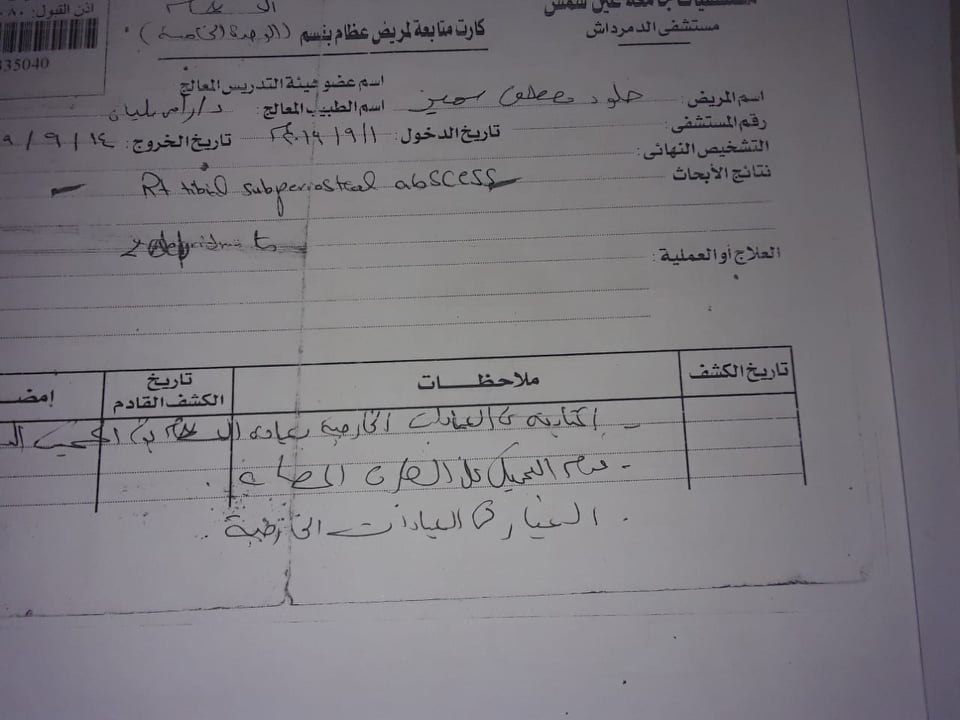 اذن القبول:
مستشفيات جامعة عين شمس
مستشفى الدمرداش
كارت متابعة لمريض عظام بقسم
335040
اسم المريض: خلود مصطفى سمير
اسم عضو هيئة التدريس المعالج
اسم الطبيب المعالج: د/رامز
رقم المستشفى:
تاريخ الدخول: ٢٠١٩/٩/١
تاريخ الخروج: ١٤ / ٩ / ٩
التشخيص النهائى:
نتائج الأبحاث
Rt tibial subperiosteal abscess
العلاج أو العملية:
تاريخ الكشف
ملاحظــات
تاريخ الكشف القادم
إمضـ
- المتابعة فى العيادات الخارجية بعيادة
- عدم التحميل على الطرف المصاب.
. الغيار فى العيادات الخارجية